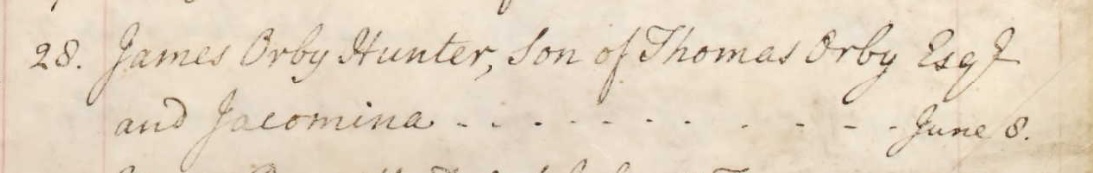 28. James Orby Hunter, Son of Thomas Orby Esqr
and Jacomina - - - - - - - - - - - June 8.